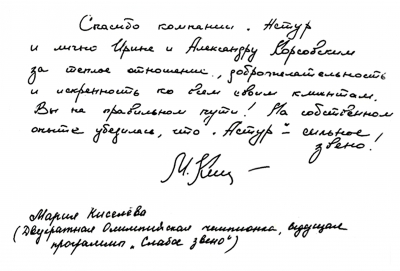 Спасибо компании „Астур"
и лично Ирине и Александру Корсовским
за теплое отношение, доброжелательность
и искренность ко всем своим клиентам.
Вы на правильном пути! На собственном
опыте убедилась, что „Астур" - сильное
звено!
Мария Киселёва
(Двукратная Олимпийская чемпионка, ведущая
программы „Слабое звено")